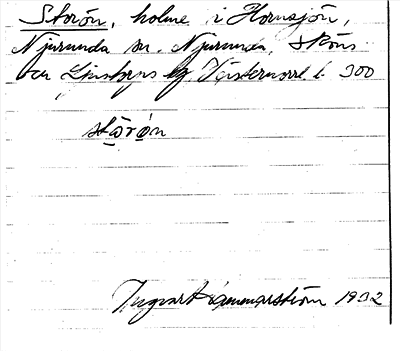 Storön, holme i Hornsjön,
Njurunda sn, Njurunda, Sköns
och Ljustorps tg Västernorrl. l. 300
stōrö́n
Ingvar Hammarström 1932